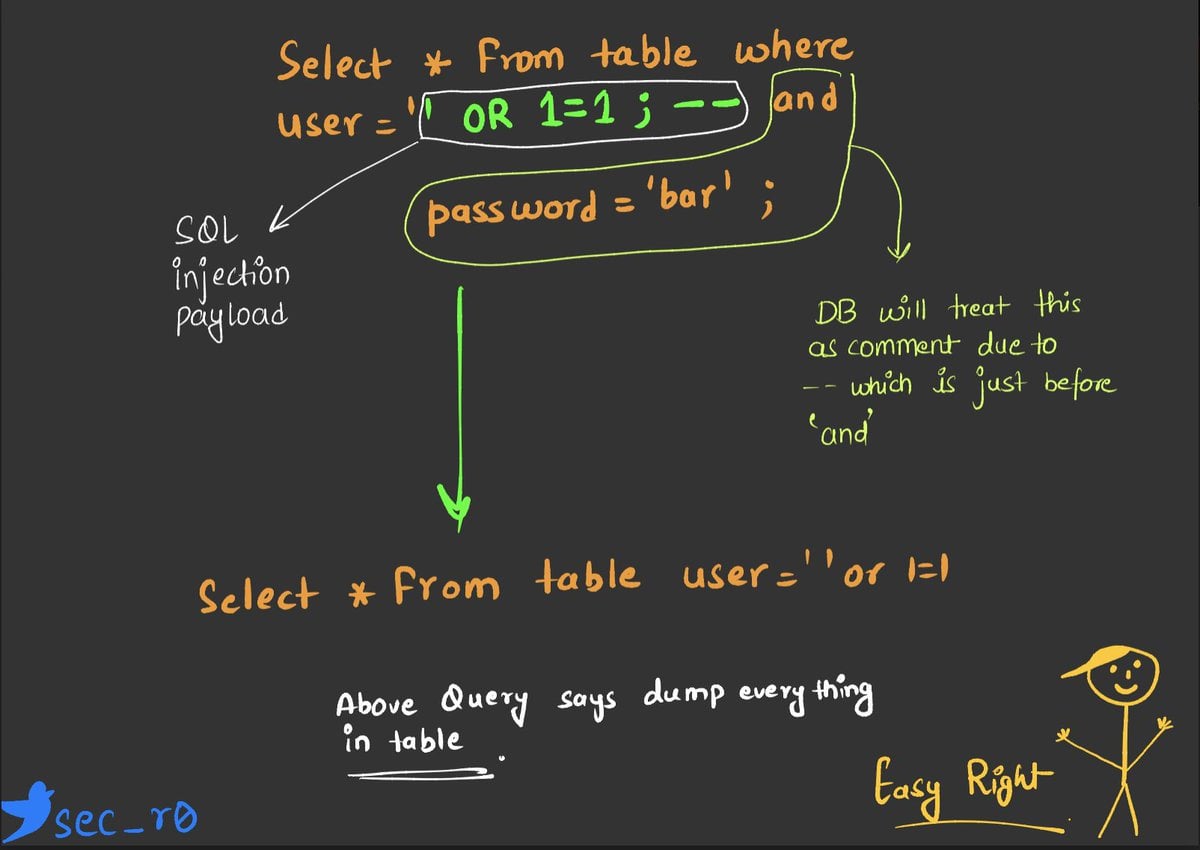 Select * From table where
user = '' OR 1=1 ; -- and
password = 'bar' ;
SQL
injection
payload
DB will treat this
as comment due to
-- which is just before
'and'
Select * From table user = '' or 1=1
Above Query says dump everything
in table.
Easy Right
sec_r0